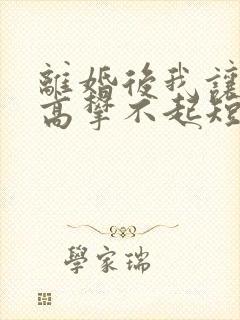 離婚後我讓
高攀不起短
學家瑞